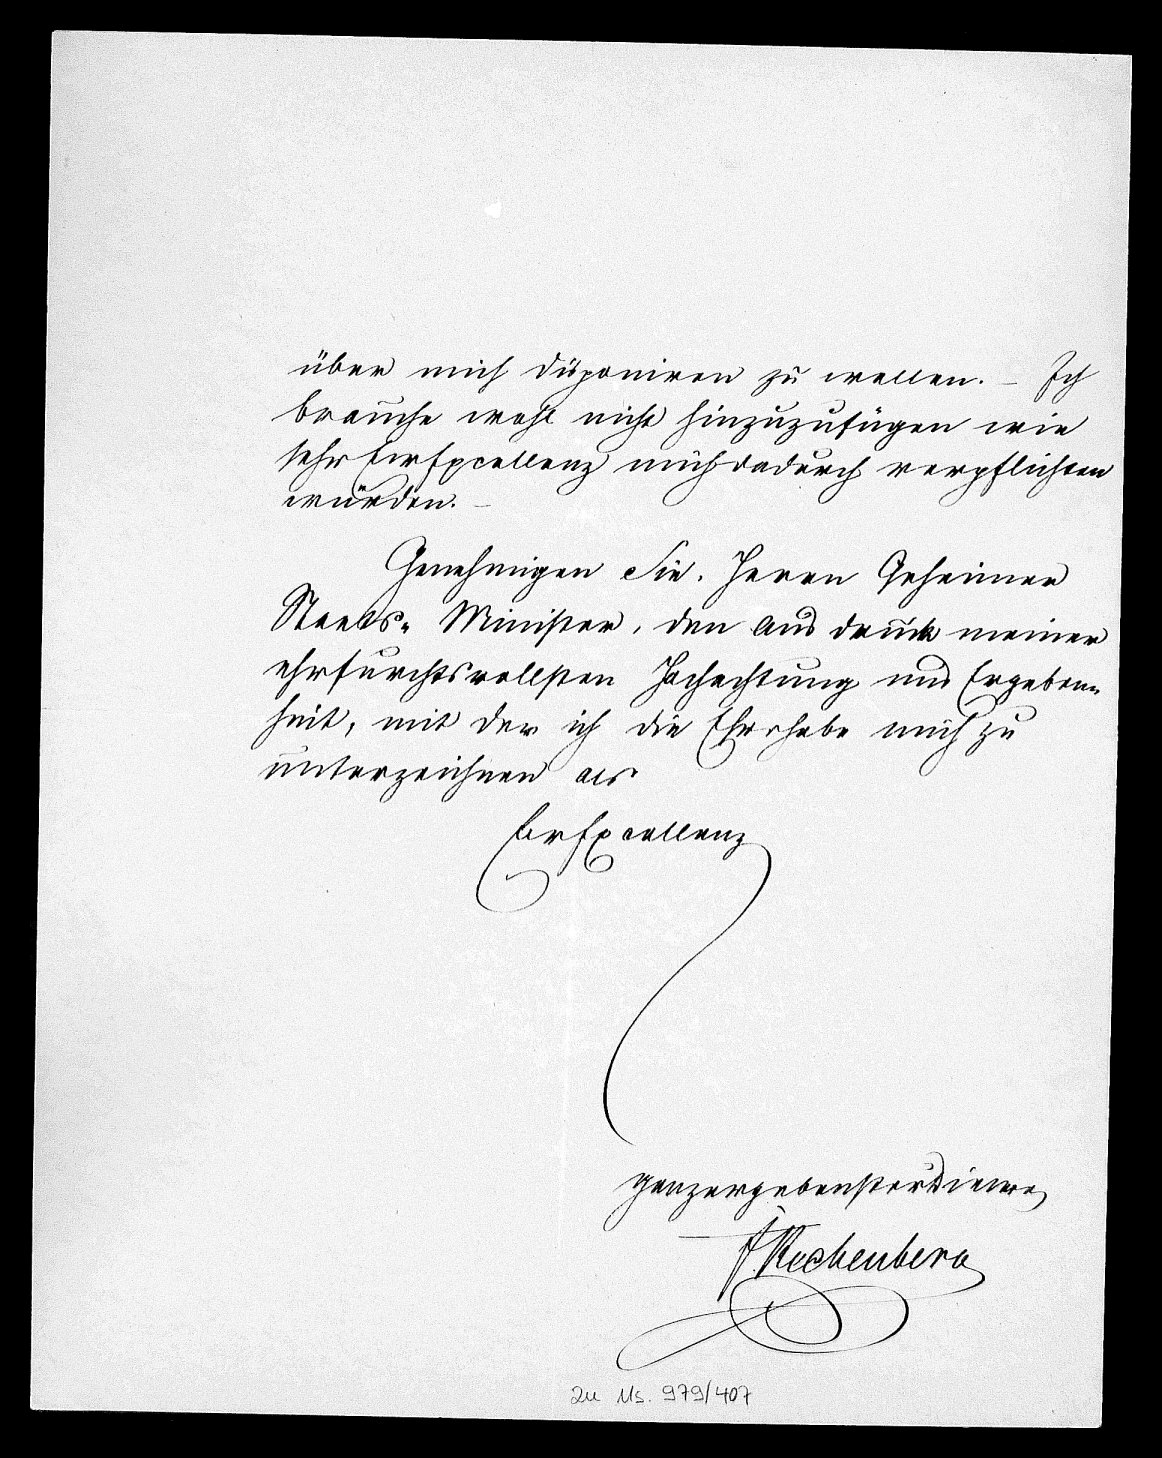 über mich disponiren zu wollen. – Ich
brauche wohl nicht hinzuzufügen wie
sehr Ew Excellenz mich dadurch verpflichten
würden. –
Genehmigen Sie, Herrn Geheimer
Staats- Minister, den Ausdruck meiner
ehrfurchtsvollsten Hochachtung und Ergeben-
heit, mit der ich die Ehre habe mich zu
unterzeichnen als
Ew Excellenz
ganz ergebenster Diener
F. Rechenberg
zu Ms. 979/407